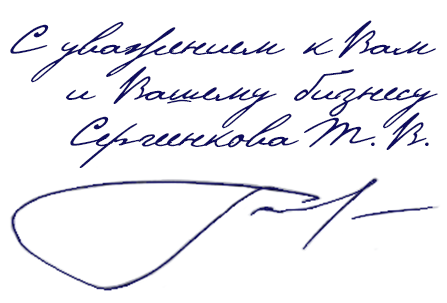 С уважением к Вам
и Вашему бизнесу
Сергиенкова Т. В.